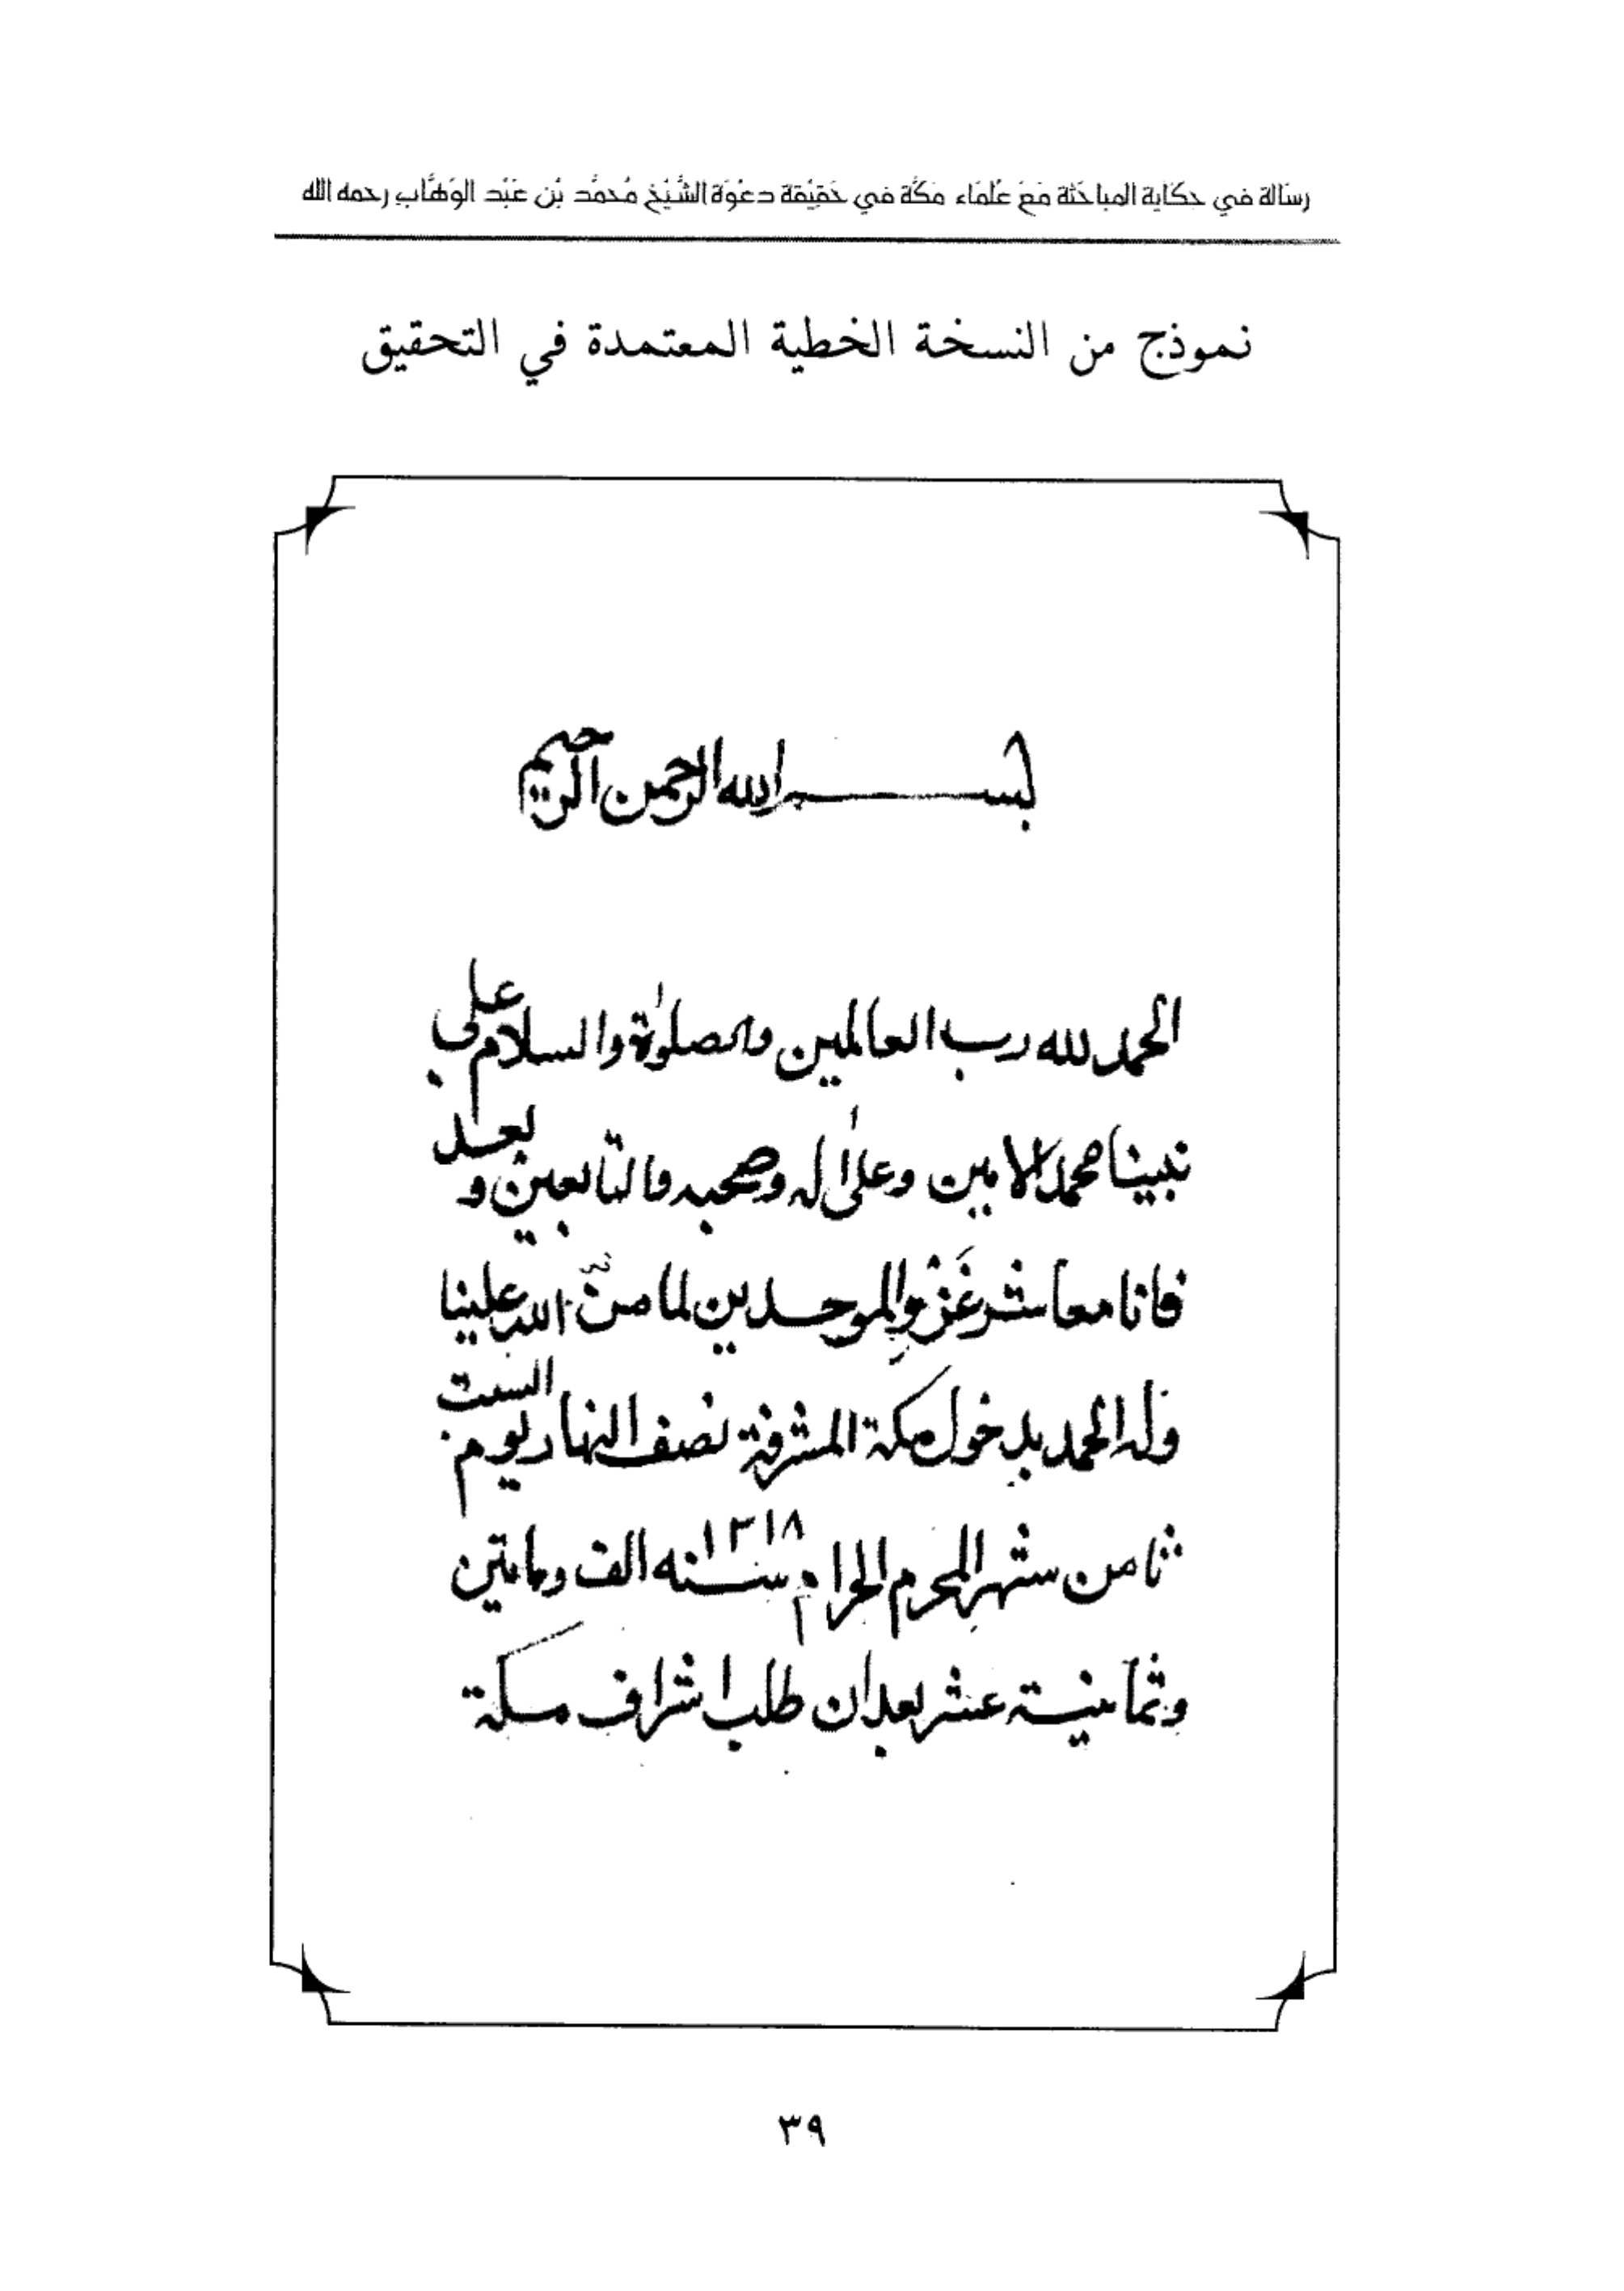 رسَالة في حكَاية المباحَثة مَعَ عُلمَاء مَكَّة في حَقيْقة دعوَة الشَّيْخ مُحمَّد بْن عَبْد الوَهَّاب رحمه الله
نموذج من النسخة الخطية المعتمدة في التحقيق
بسم الله الرحمن الرحيم
الحمد لله رب العالمين والصلوٰة والسلام على
نبينا محمد الامين وعلىٰ اله وصحبه والتابعين وبعد
فانا معاشر غَزْوِ الموحدين لما منّ الله علينا
وله الحمد بدخول مكة المشرفة نصف النهار يوم السبت
ثامن شهر المحرم الحرام سنه ١٢١٨ الف ومايتين
وثمانية عشر بعد ان طلب اشراف مكة
٣٩